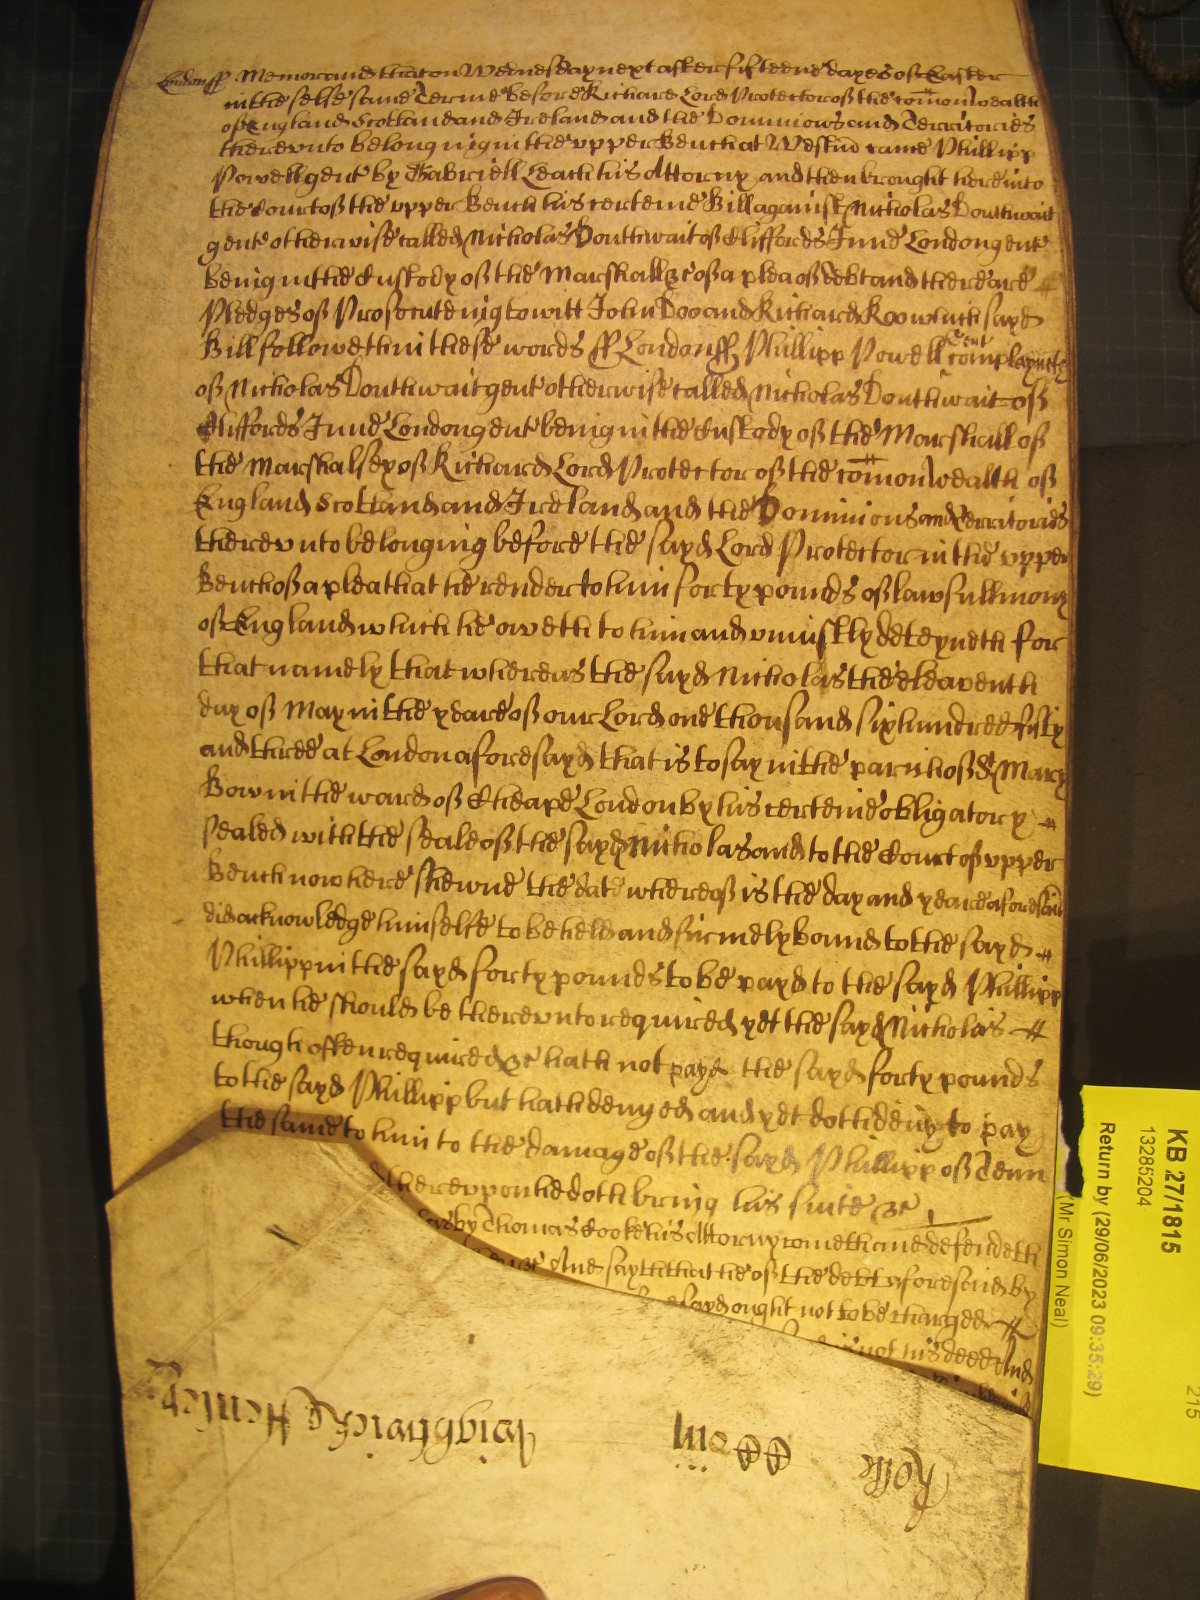 London ss Memorand that on Wednesday next after fifteene dayes of Easter
in the selfe same Terme before Richard Lord Protector of the com̄on Wealth
of England Scotland and Ireland and the Dominions and Territories
therevnto belonginge in the vpper Bench at Westm̄ came Phillipp
Powell gent by Gabriell Leach his Attorny and then brought here into
the Court of the vpper Bench his certeine Bill against Nicholas Douthwait
gent otherwise called Nicholas Douthwait of Cliffords Inne London gent
being in the Custody of the Marshall &c of a plea of debt and there are
Pledges of Prosecuteing to witt John Doo and Richard Roo which sayd
Bill followeth in these words ss London ss Phillipp Powell gent complayneth
of Nicholas Douthwait gent otherwise called Nicholas Douthwait of
Cliffords Inne London gent being in the Custody of the Marshall of
the Marshalsey of Richard Lord Protector of the com̄on Wealth of
England Scotland and Ireland and the Dominions and Territories
therevnto belonging before the sayd Lord Protector in the vpper
Bench of a plea that he render to him forty pounds of lawfull mony
of England which he oweth to him and vniustly deteyneth for
that namely that whereas the sayd Nicholas the eleaventh
day of May in the yeare of our Lord one thousand six hundred fifty
and three at London aforesayd that is to say in the parish of St Mary
Bow in the ward of Cheape London by his certeine obligatory
sealed with the seale of the sayd Nicholas and to the Court of vpper
Bench now here shewne the date whereof is the day and yeare aforesaid
did acknowledge himselfe to be held and firmely bound to the sayd
Phillipp in the sayd forty pounds to be payd to the sayd Phillipp
when he should be therevnto required yet the sayd Nicholas
though often required &c hath not payd the sayd forty pounds
to the sayd Phillipp but hath denyed and yet doth deny to pay
the same to him to the damage of the sayd Phillipp of Tenn
therevppon he doth bring his suite &c
by Thomas Cooke his Attorny cometh and defendeth
&c And sayth that he of the debt aforesaid by
sayd ought not to be charged
is not his deed And
Rolle
KB 27/1815
13285204
Return by (29/06/2023 09:35:29)
(Mr Simon Neal)
215